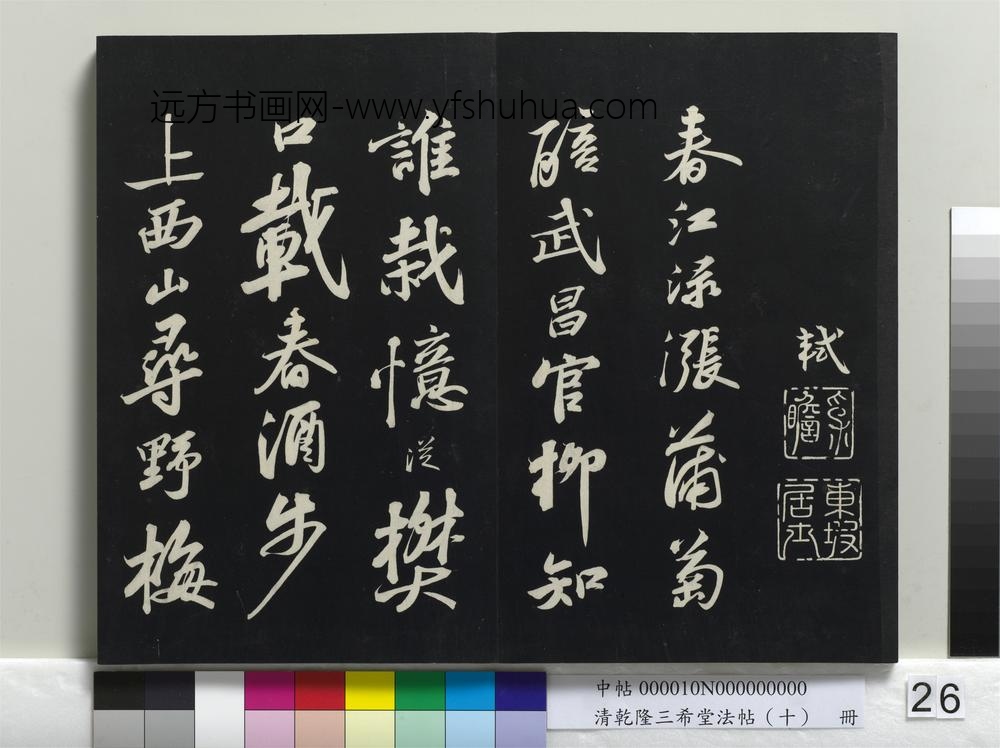 軾
東坡居士
春江渌漲蒲萄
醅武昌官柳知
誰栽憶從樊
口載春酒步
上西山尋野梅
远方书画网-www.yfshuhua.com
中帖 000010N000000000
清乾隆三希堂法帖（十） 冊
26